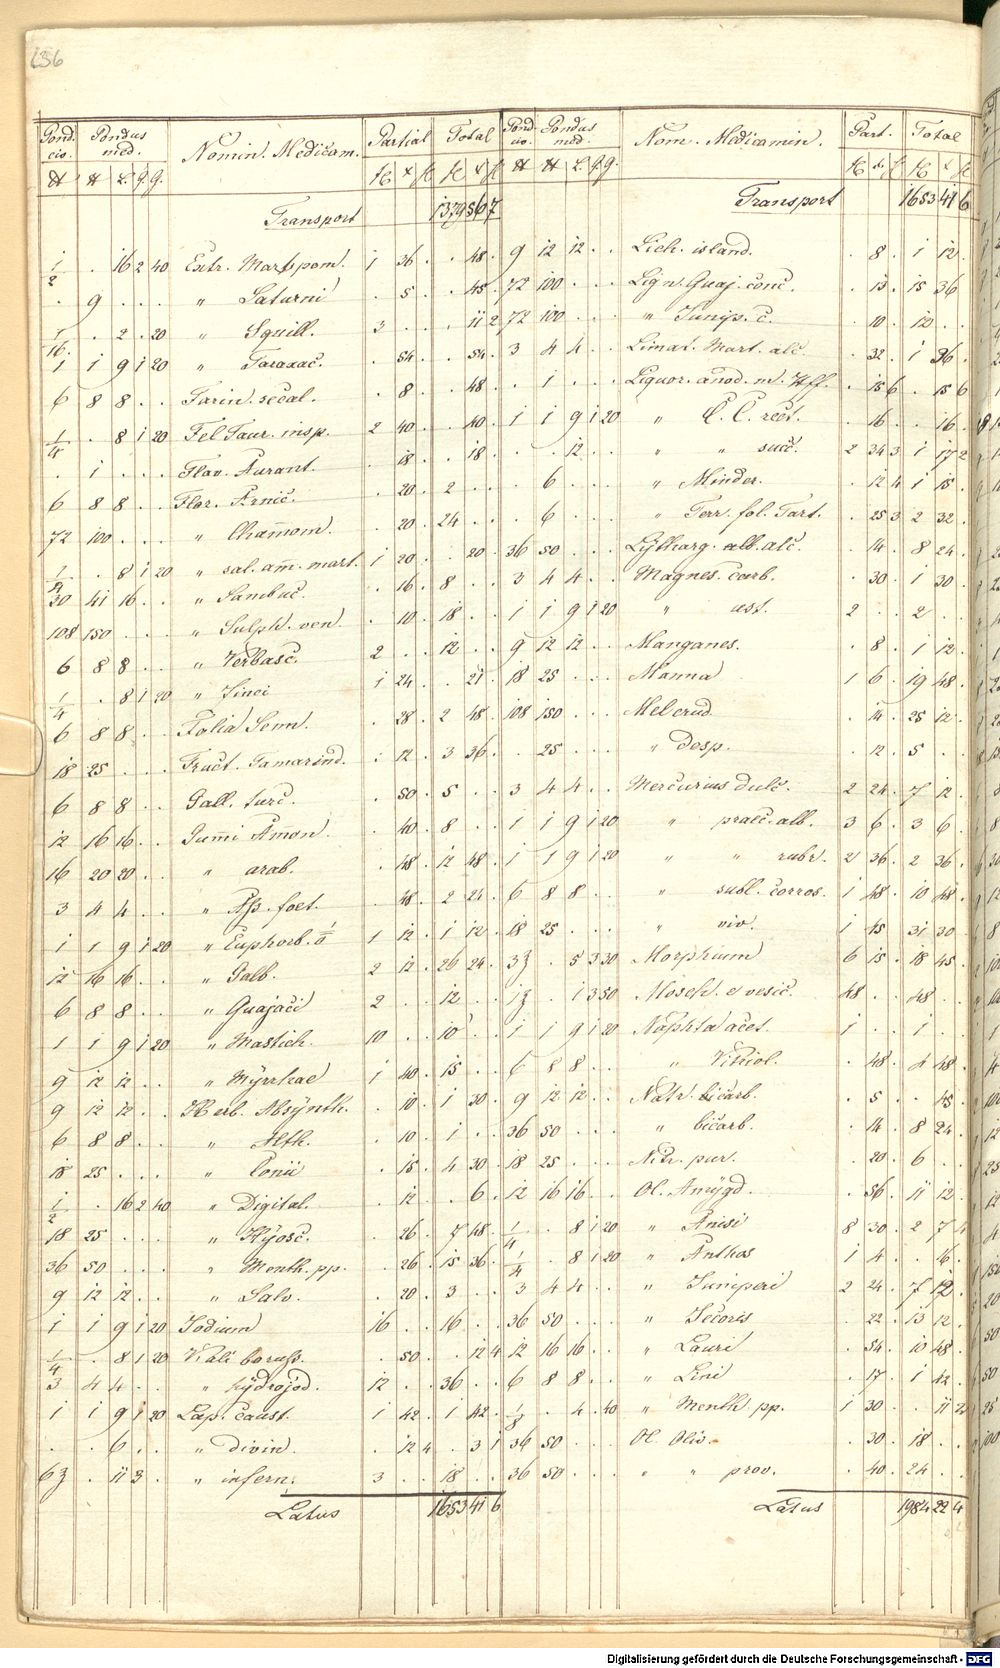 136
Pond. civ. Pondus med. Nomin. Medicam. Partial Total
Transport 1379 56 7
1/2 . 16 2 40 Extr. Mart. pom. 1 36 . . 48 .
. 9 . . . " Saturni . 5 . . 45 .
1/16 . 2 . 20 " Squill. 3 . . . 11 2
1 1 9 1 20 " Taraxac. . 54 . . 54 .
6 8 8 . . Farin. secal. . 8 . . 48 .
1/4 . 8 1 20 Fel Taur. insp. 2 40 . . 40 .
. 1 . . . Flav. Aurant. . 18 . . 18 .
6 8 8 . . Flor. Arnic. . 20 . 2 . .
72 100 . . . " Chamom. . 20 . 24 . .
1/4 . 8 1 20 " sal. am. mart. 1 20 . . 20 .
30 41 16 . . " Sambuc. . 16 . 8 . .
108 150 . . . " Sulph. ven. . 10 . 18 . .
6 8 8 . . " Verbasc. 2 . . 12 . .
1/4 . 8 1 20 " Zinci 1 24 . . 21 .
6 8 8 . . Folia Senn. . 28 . 2 48 .
18 25 . . . Fruct. Tamarind. . 12 . 3 36 .
6 8 8 . . Gall. turc. . 50 . 5 . .
12 16 16 . . Gumi Amon. . 40 . 8 . .
16 20 20 . . " arab. . 48 . 12 48 .
3 4 4 . . " Aß. foet. . 48 . 2 24 .
1 1 9 1 20 " Euphorb. 1 12 . 1 12 .
12 16 16 . . " Galb. 2 12 . 26 24 .
6 8 8 . . " Guajaci 2 . . 12 . .
1 1 9 1 20 " Mastich. 10 . . 10 . .
9 12 12 . . " Myrrhae 1 40 . 15 . .
9 12 12 . . Herb. Absynth. . 10 . 1 30 .
6 8 8 . . " Alth. . 10 . 1 . .
18 25 . . . " Conii . 15 . 4 30 .
1/2 . 16 2 40 " Digital. . 12 . . 6 .
18 25 . . . " Hyosc. . 26 . 7 48 .
36 50 . . . " Menth. pp. . 26 . 15 36 .
9 12 12 . . " Salv. . 20 . 3 . .
1 1 9 1 20 Jodium 16 . . 16 . .
1/4 . 8 1 20 Kali boruss. . 50 . . 12 4
3 4 4 . . " hydrojod. 12 . . 36 . .
1 1 9 1 20 Lap. caust. 1 42 . 1 42 .
. . 6 . . " divin. . 12 4 . 3 1
6ʒ . 11 3 . " infern. 3 . . 18 . .
Latus 1653 41 6
Pond. civ. Pondus med. Nom. Medicamin. Part. Total
Transport 1653 41 6
9 12 12 . . Lich. island. . 8 . 1 12 .
72 100 . . . Lign. Guaj. conc. . 13 . 15 36 .
72 100 . . . " Junip. c. . 10 . 12 . .
3 4 4 . . Limat. Mart. alc. . 32 . 1 36 .
. 1 . . . Liquor. anod. m. Hff. . 15 6 . 15 6
1 1 9 1 20 " C. C. rect. . 16 . . 16 .
. . 12 . . " " succ. 2 34 3 1 17 2
. . 6 . . " Minder. . 12 4 1 15 .
. . 6 . . " Terr. fol. Tart. . 25 3 2 32 .
36 50 . . . Lytharg. alc. . 14 . 8 24 .
3 4 4 . . Magnes. carb. . 30 . 1 30 .
1 1 9 1 20 " ust. 2 . . 2 . .
9 12 12 . . Manganes. . 8 . 1 12 .
18 25 . . . Manna 1 6 . 19 48 .
108 150 . . . Mel crud. . 14 . 25 12 .
. 25 . . . " desp. . 12 . 5 . .
3 4 4 . . Mercurius dulc. 2 24 . 7 12 .
1 1 9 1 20 " praec. alb. 3 6 . 3 6 .
1 1 9 1 20 " " rubr. 2 36 . 2 36 .
6 8 8 . . " subl. corros. 1 48 . 10 48 .
18 25 . . . " viv. 1 15 . 31 30 .
3ʒ . 5 3 30 Morphium 6 15 . 18 45 .
1ʒ . 1 3 50 Mosch. e vesic. 48 . . 48 . .
1 1 9 1 20 Naphta acet. 1 . . 1 . .
6 8 8 . . " Vitriol. . 48 . 4 48 .
9 12 12 . . Natr. bicarb. . 5 . . 45 .
36 50 . . . " bicarb. . 14 . 8 24 .
18 25 . . . Nitr. pur. . 20 . 6 . .
12 16 16 . . Ol. Amygd. . 56 . 11 12 .
1/4 . 8 1 20 " Anisi 8 30 . 2 7 4
1/4 . 8 1 20 " Anthos 1 4 . . 16 .
3 4 4 . . " Juniperi 2 24 . 7 12 .
36 50 . . . " Jecoris . 22 . 13 12 .
12 16 16 . . " Lauri . 54 . 10 48 .
6 8 8 . . " Lini . 17 . 1 42 .
1/8 . 4 . 40 " Menth. pp. 1 30 . . 11 2
36 50 . . . Ol. Oliv. . 30 . 18 . .
36 50 . . . " " prov. . 40 . 24 . .
Latus 1984 22 4
Digitalisierung gefördert durch die Deutsche Forschungsgemeinschaft - DFG